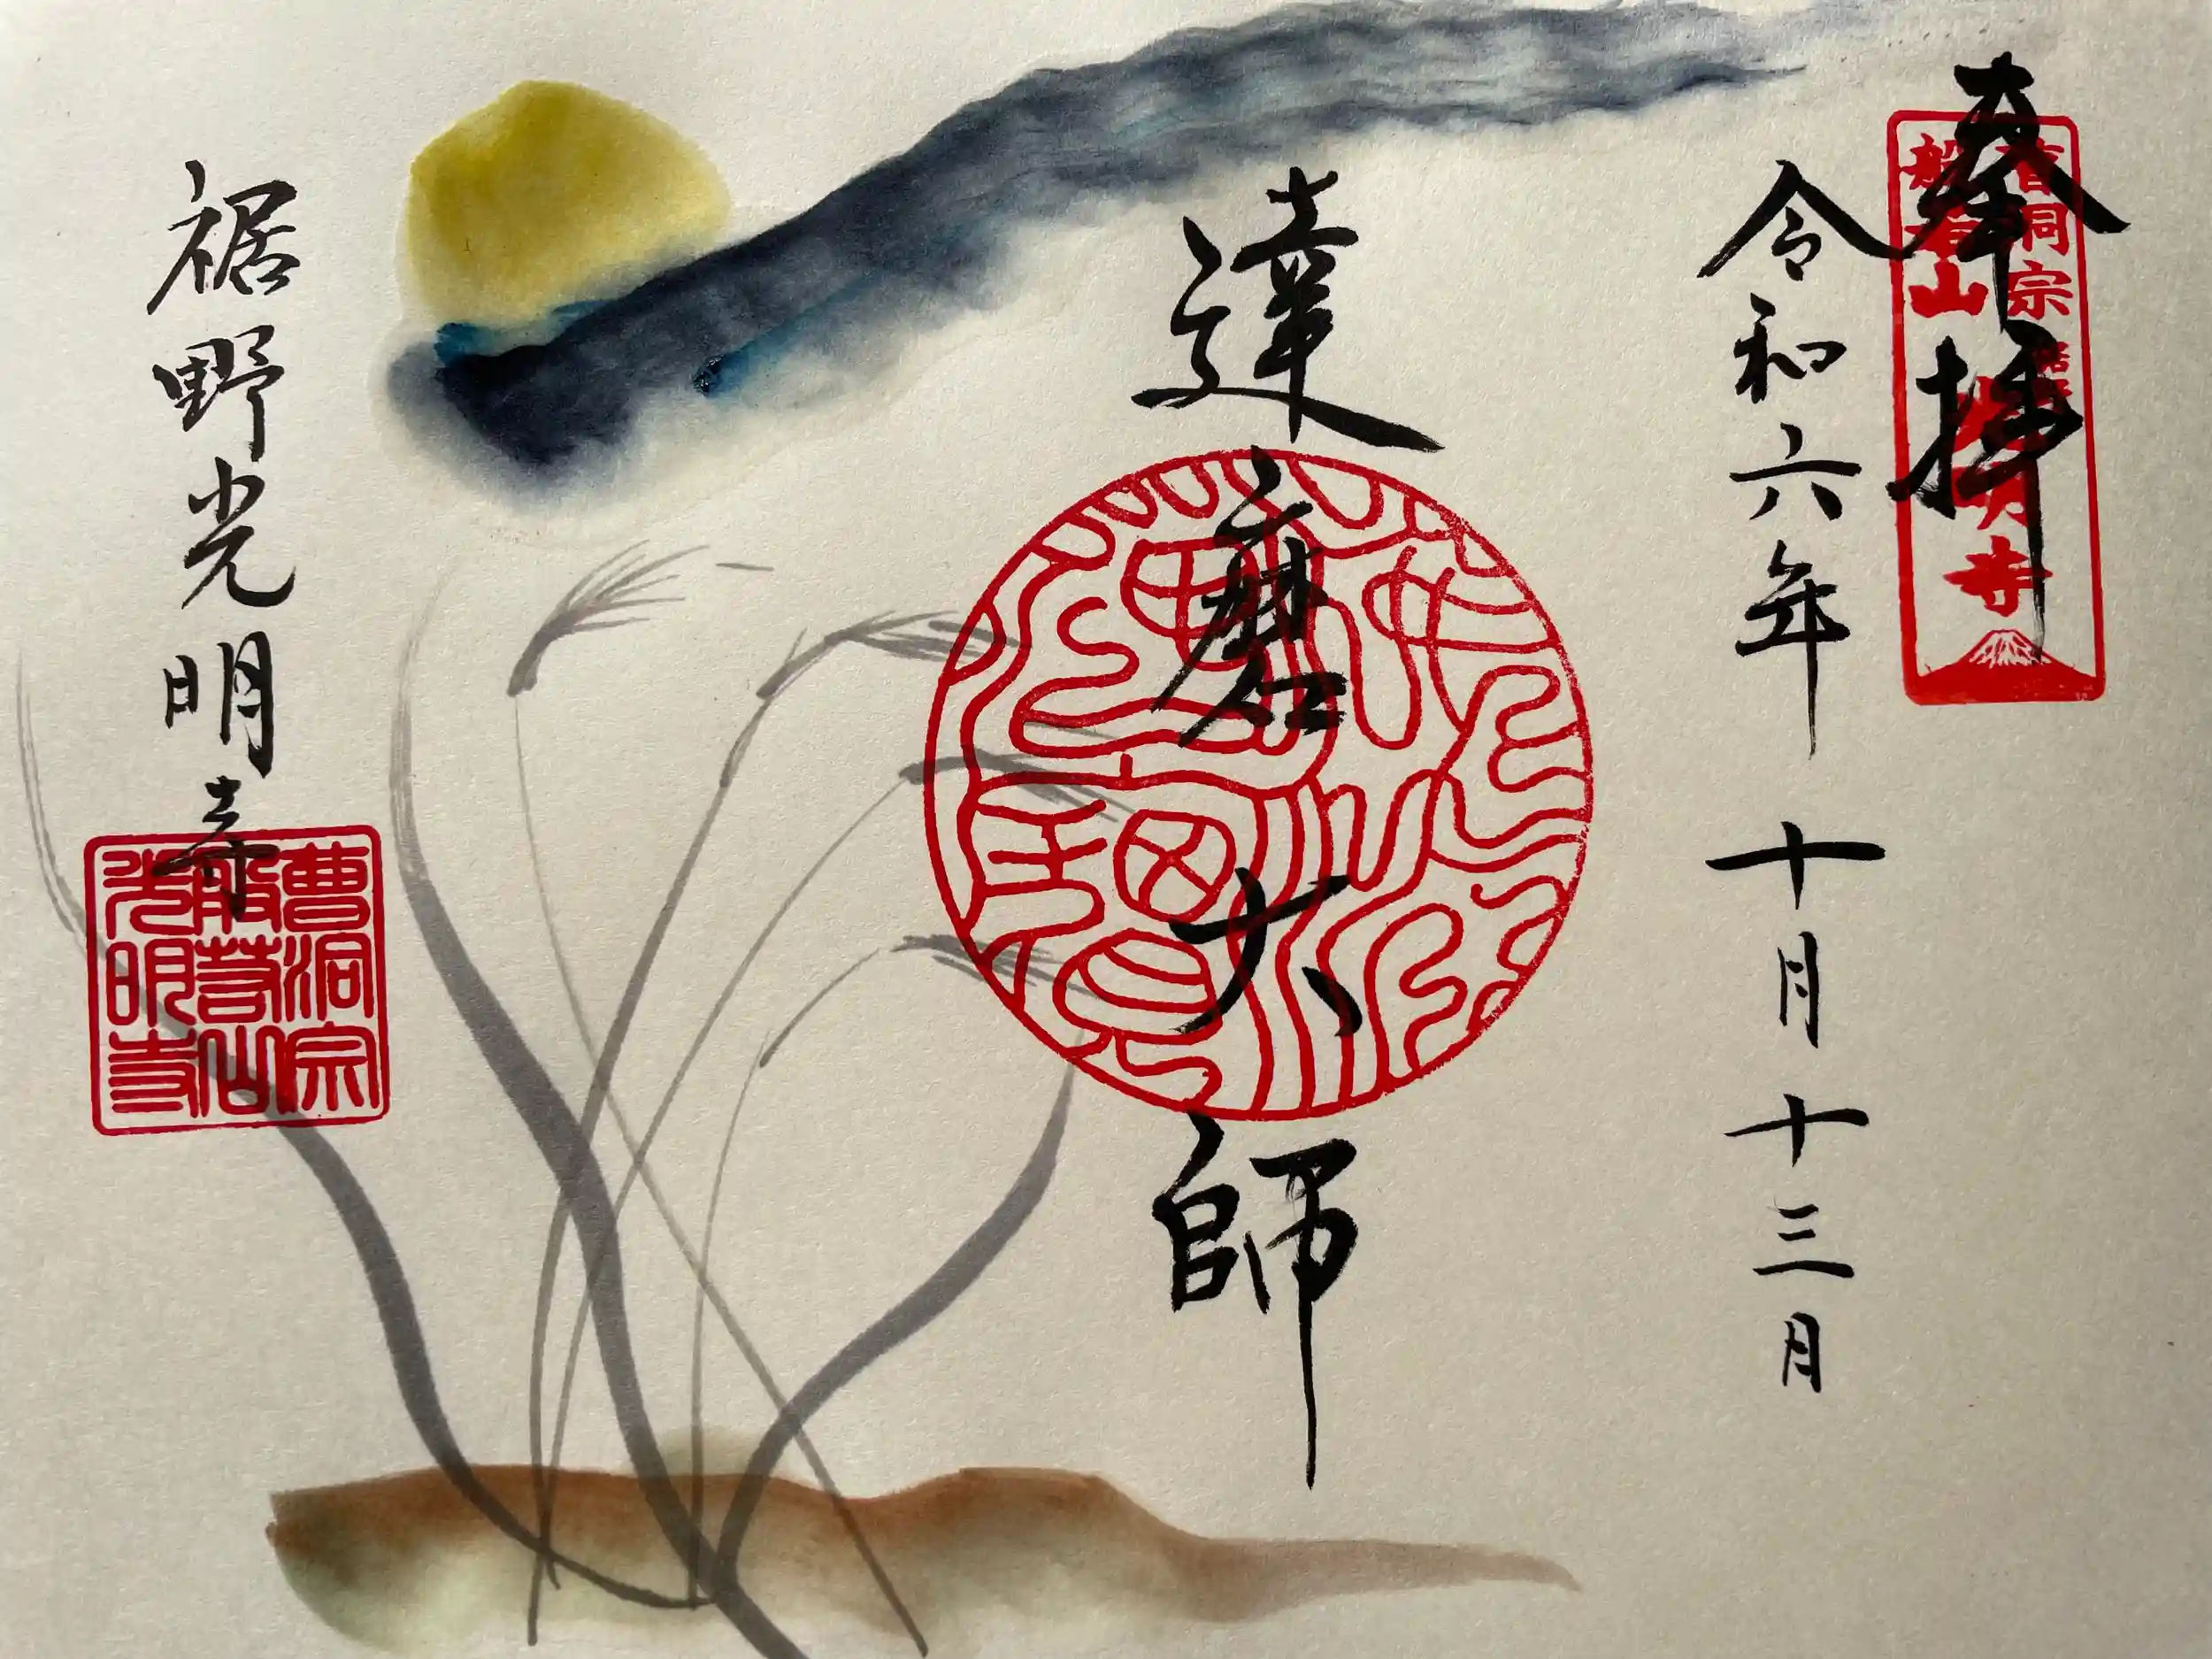 奉拝
曹洞宗
般若山
光明寺
令和六年 十月十三日
達磨大師
裾野光明寺
曹洞宗
般若山
光明寺